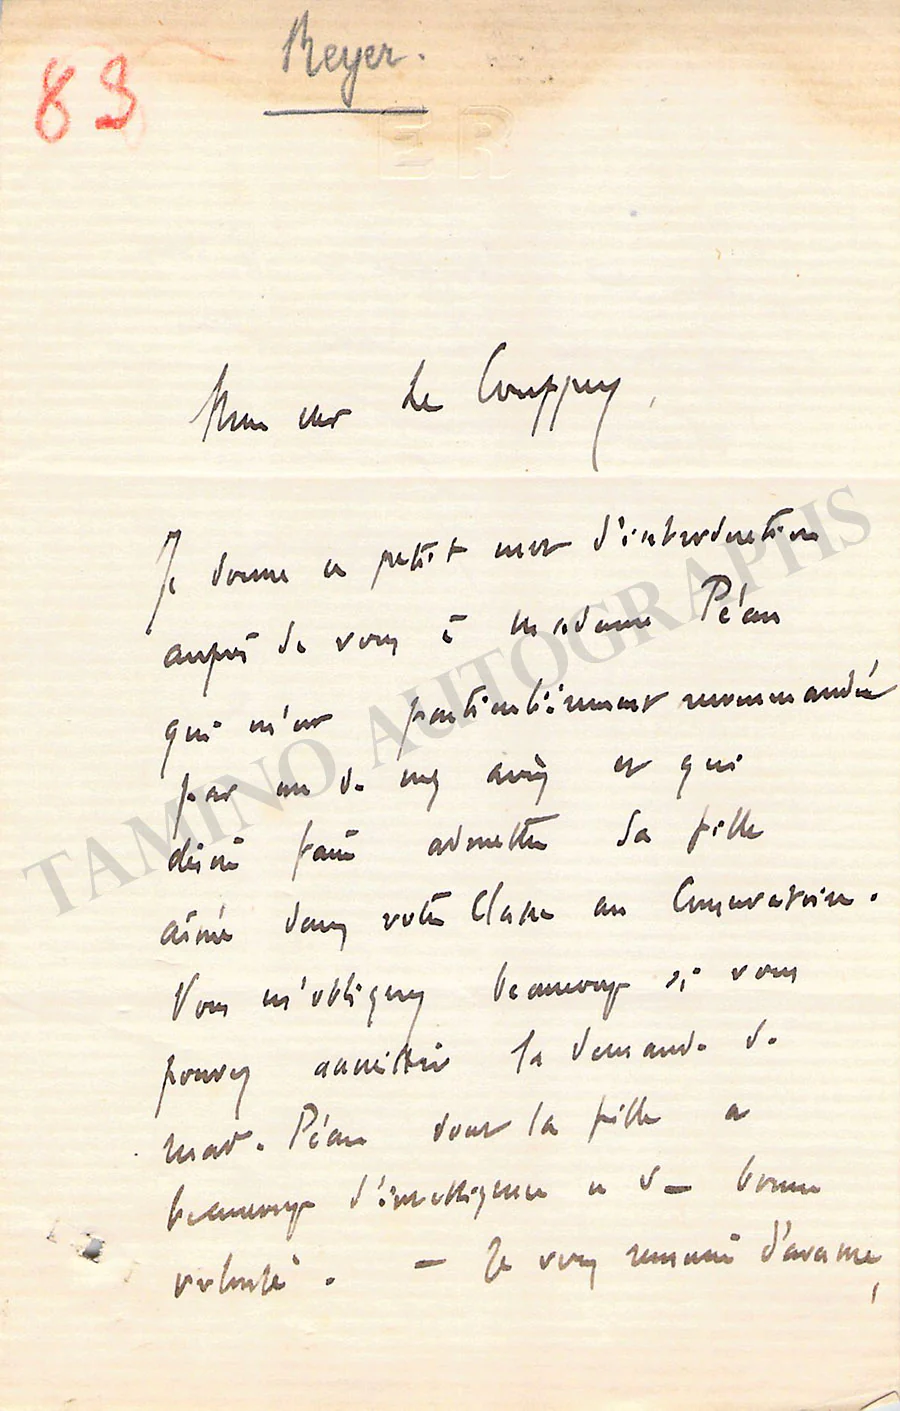 Reyer.
83
ER
Mon cher Le Couppey,
Je donne ce petit mot d'introduction
auprès de vous à Madame Péan
qui m'est particulièrement recommandée
par un de mes amis et qui
désire faire admettre sa fille
aînée dans votre Classe au Conservatoire.
Vous m'obligerez beaucoup si vous
pouvez accueillir la demande de
mad. Péan dont la fille a
beaucoup d'intelligence et de bonne
volonté. — Je vous remercie d'avance,
TAMINO AUTOGRAPHS